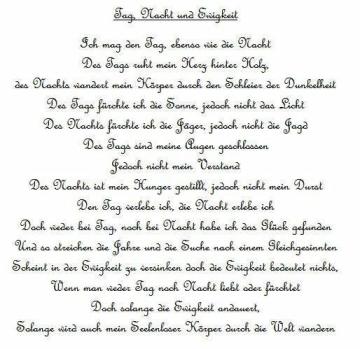 Tag, Nacht und Ewigkeit
Ich mag den Tag, ebenso wie die Nacht
Des Tags ruht mein Herz hinter Holz,
des Nachts wandert mein Körper durch den Schleier der Dunkelheit
Des Tags fürchte ich die Sonne, jedoch nicht das Licht
Des Nachts fürchte ich die Jäger, jedoch nicht die Jagd
Des Tags sind meine Augen geschlossen
Jedoch nicht mein Verstand
Des Nachts ist mein Hunger gestillt, jedoch nicht mein Durst
Den Tag verlebe ich, die Nacht erlebe ich
Doch weder bei Tag, noch bei Nacht habe ich das Glück gefunden
Und so streichen die Jahre und die Suche nach einem Gleichgesinnten
Scheint in der Ewigkeit zu versinken doch die Ewigkeit bedeutet nichts,
Wenn man weder Tag noch Nacht liebt oder fürchtet
Doch solange die Ewigkeit andauert,
Solange wird auch mein Seelenloser Körper durch die Welt wandern